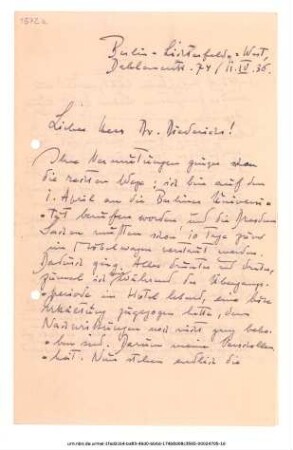 1572a
Berlin-Lichterfelde-West,
74 / 11. IV. 36.
Lieber Herr Dr. Diederichs!
Ihre Vermutungen gingen schon
die rechten Wege; ich bin auf den
1. April an die Berliner Universi-
tät berufen worden und die Dresdner
Sachen mußten schon 10 Tage zuvor
im Möbelwagen verstaut werden.
Dadurch ging alles drunter und drüber,
zumal ich während der Übergangs-
periode im Hotel lebend, eine böse
Erkältung zugezogen hatte, deren
Nachwirkungen noch nicht ganz beho-
ben sind. Darum meine
Nun stehen endlich die